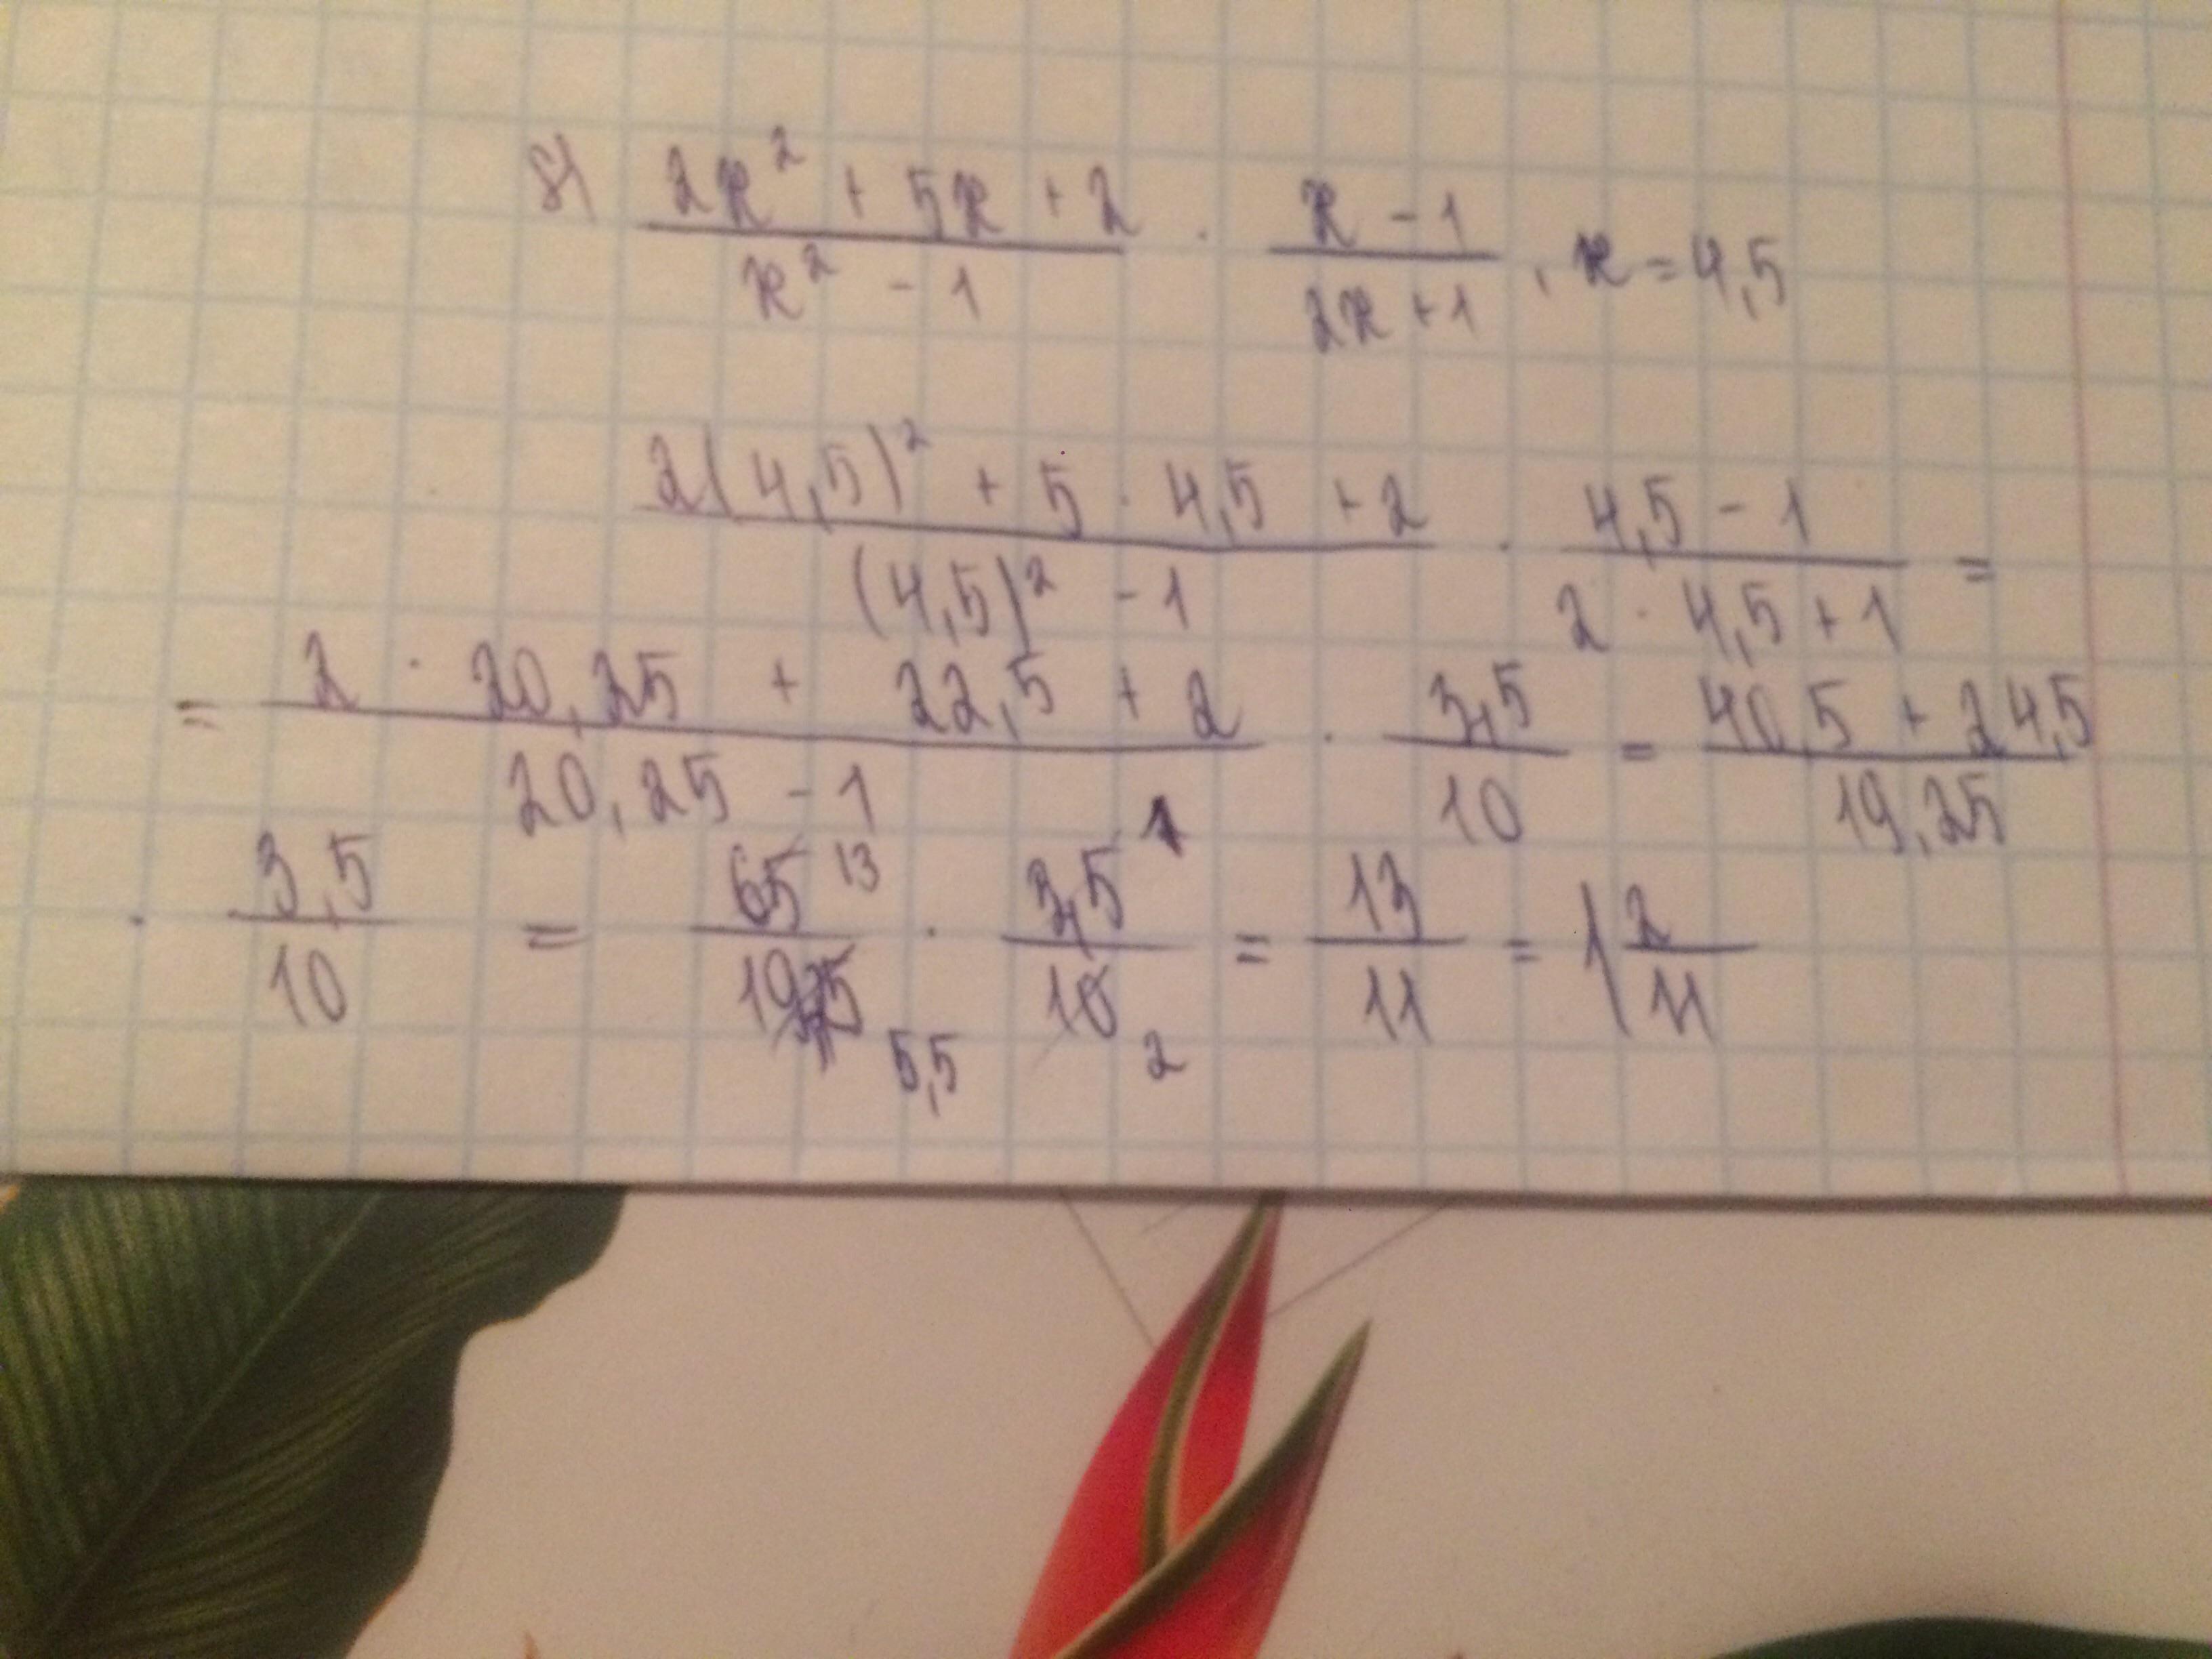 8) (2x² + 5x + 2)/(x² - 1) · (x - 1)/(2x + 1), x = 4,5
(2(4,5)² + 5 · 4,5 + 2)/((4,5)² - 1) · (4,5 - 1)/(2 · 4,5 + 1) =
= (2 · 20,25 + 22,5 + 2)/(20,25 - 1) · 3,5/10 = (40,5 + 24,5)/19,25
· 3,5/10 = 65 13/19,25 5,5 · 3,5 1/10 2 = 13/11 = 1 2/11